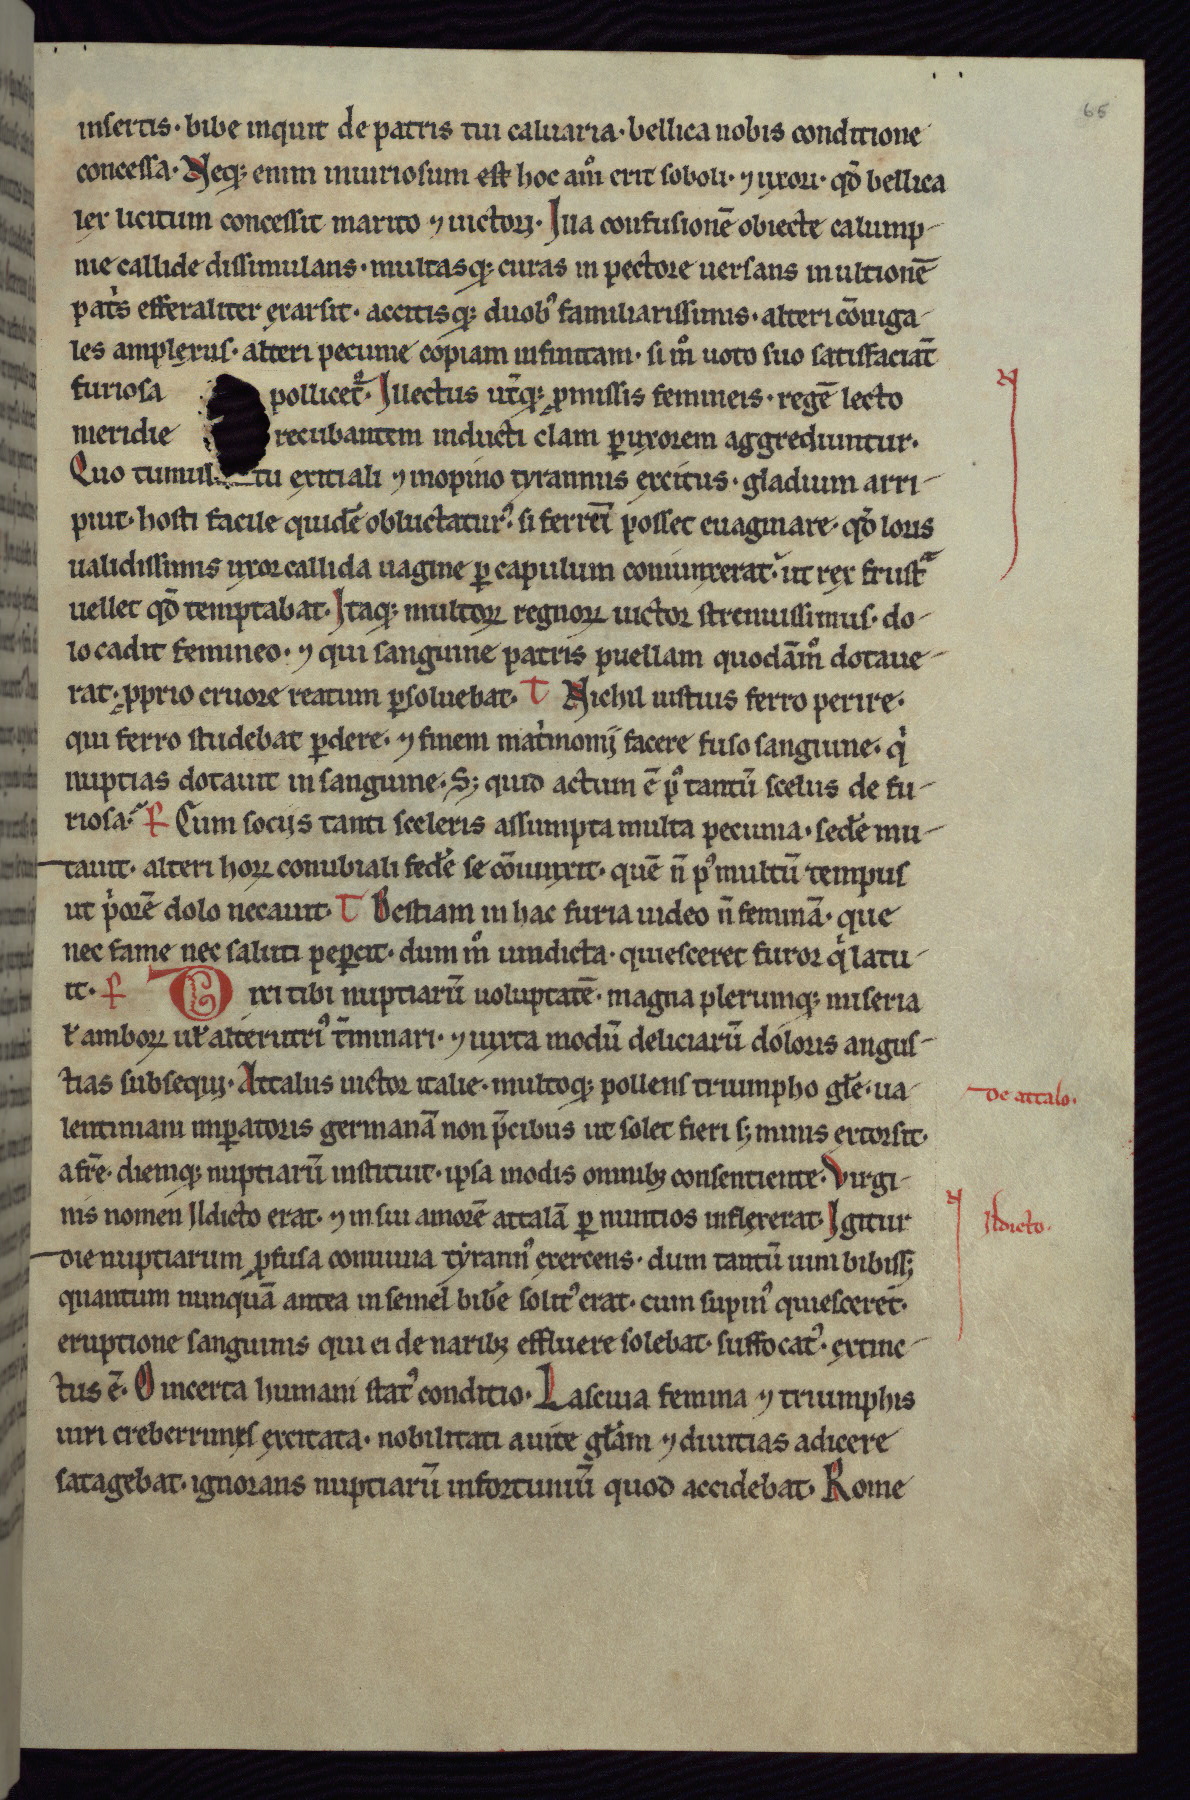 65
insertis· bibe inquit de patris tui caluaria· bellica nobis conditione
concessa· Neq; enim iniuriosum est hoc am̊ erit soboli· ⁊ uxori· qd̄ bellica
lex licitum concessit marito ⁊ uictorꝫ· Illa confusionē obiecte calump-
nie callide dissimulans· multasq; curas in pectore uersans in ultionē
pat̉s efferaliter exarsit· accitisq; duob᷒ familiarissimis· alteri cōiuga-
les amplexus· alteri pecunie copiam infinitam· si m̊ uoto suo satisfaciāt
furiosa pollicet᷑· Illectus utq̄; ꝓmissis femineis· regē lecto
meridie recubantem inducti clam ꝑ uxorem aggrediuntur·
Quo tumultu exitiali ⁊ inopino tyrannus excitus· gladium arri-
puit· hosti facile quidē obluctatur᷒· si ferrū posset euaginare· qd̄ loris
ualidissimis uxor callida uagine ꝑ capulum coniunxerat· ut rex frustᷓ
uellet qd̄ temptabat· Itaq; multoꝝ regnoꝝ uictor strenuissimus· do-
lo cadit femineo· ⁊ qui sanguine patris puellam quodām̊ dotaue-
rat· ꝓprio cruore reatum ꝑsoluebat· T Nichil iustius ferro perire·
qui ferro studebat ꝑdere· ⁊ finem mat̉monij facere fuso sanguine· q̉
nuptias dotauit in sanguine· S; quid actum ē p᷒ tantū scelus de fu-
riosa· F Cum socijs tanti sceleris assumpta multa pecunia· sedē mu-
tauit· alteri hoꝝ conubiali fedē se cōiunxit· quē n̄ p᷒ multū tempus
ut p̉orē dolo necauit· T Bestiam in hac furia uideo n̄ feminā· que
nec fame nec saluti peꝑcit· dum m̊ uindicta· quiesceret furor q̉ latu-
it· F Dixi tibi nuptiarū uoluptatē· magna plerumq; miseria
ł amboꝝ uł alterutri᷒ t̄minari· ⁊ iuxta modū deliciarū doloris angus-
tias subsequi· Attalus uictor italie· multoq; pollens triumpho gl̄e· ua-
lentiniani imꝑatoris germanā non p̄cibus ut solet fieri s; minis extorsit·
a fr̄e· diemq; nuptiarū instituit· ipsa modis omnibꝫ consentiente· Virgi-
nis nomen Ildicto erat· ⁊ in sui amorē attalā ꝑ nuntios inflexerat· Igitur
die nuptiarum ꝓfusa conuiuia tyrann᷒ exercens· dum tantū uini bibiss;
quantum nunquā antea in semel bibē solit᷒ erat· cum supin᷒ quiesceret·
eruptione sanguinis qui ei de naribꝫ effluere solebat· suffocat᷒· extinc-
tus ē· O incerta humani stat᷒ conditio· Lasciuia femina ⁊ triumphis
uiri creberrimis excitata· nobilitati auite gl̄am ⁊ diuitias adicere
satagebat· ignorans nuptiarū infortuniū quod accidebat· Rome
De attalo·
Ildicto·